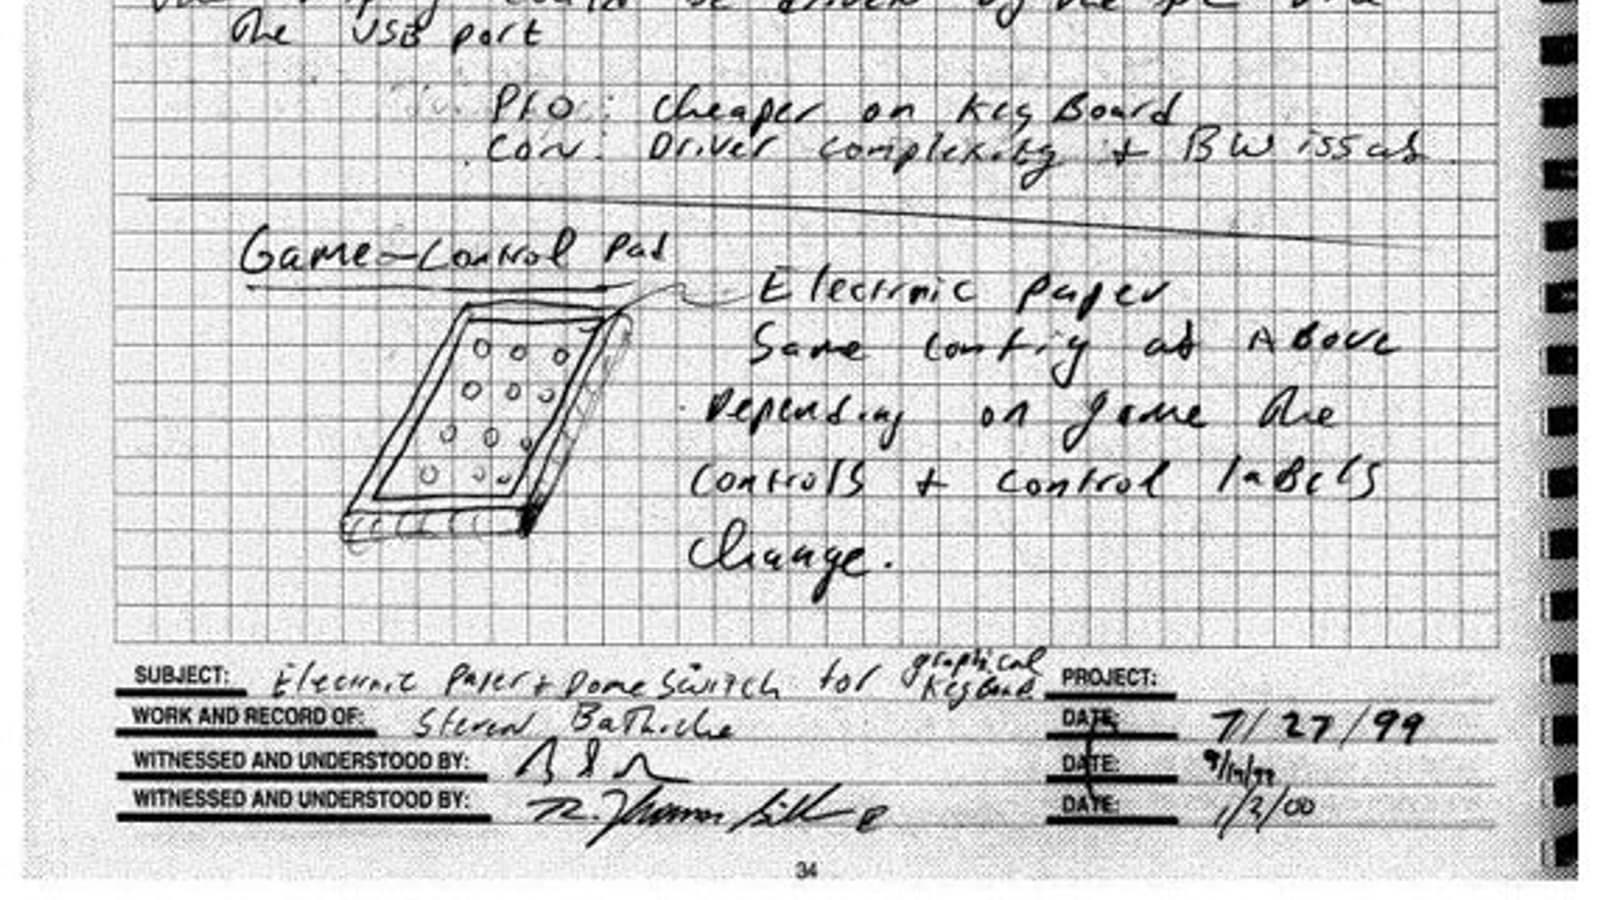 could be driven by the PC via
the USB port
Pro: cheaper on KeyBoard
Con: Driver complexity + BW issues.
Game-Control Pad
Electronic paper
Same config as Above
Depending on game the
controls + control labels
change.
SUBJECT: Electronic Paper + Dome Switch for graphical Keyboard PROJECT:
WORK AND RECORD OF: Steven Bathiche DATE: 7/27/99
WITNESSED AND UNDERSTOOD BY: DATE:
WITNESSED AND UNDERSTOOD BY: R. Thomas DATE: 1/2/00
34